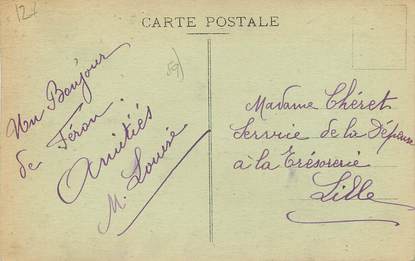 12
CARTE POSTALE
59)
Un Bonjour
de Féron.
Amitiés
M. Louise
Madame Chéret
Service de la Dépense
à la Trésorerie
Lille